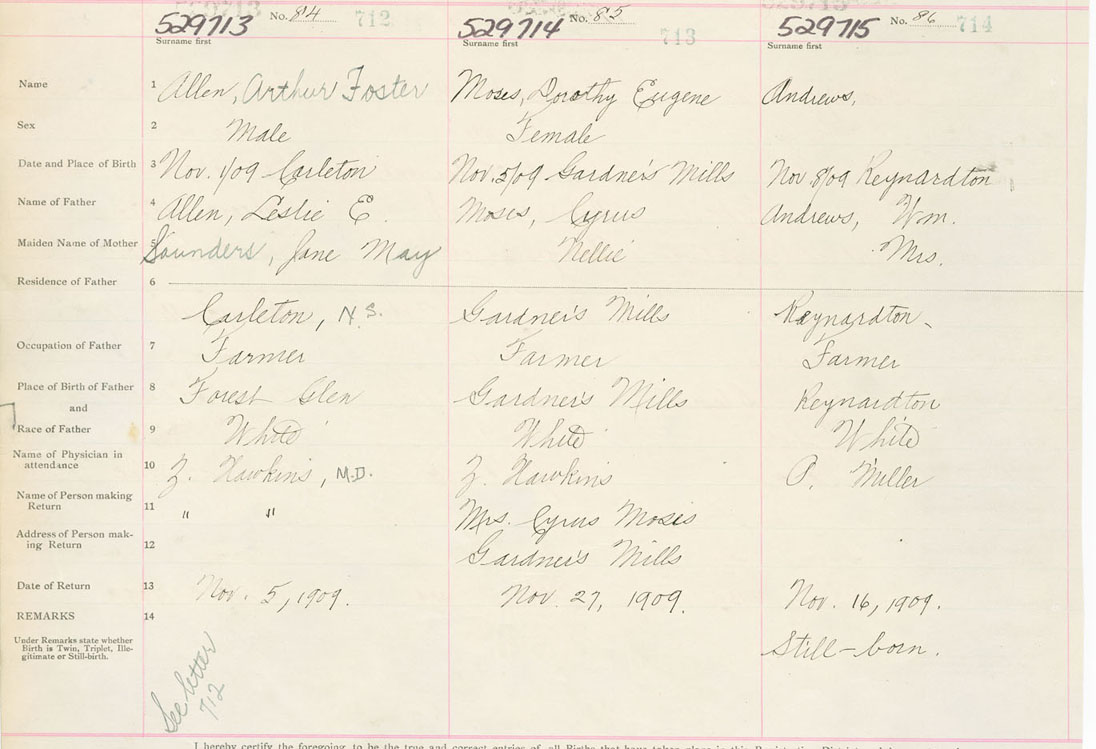 529713 No. 84 712 529714 No. 85 713 529715 No. 86 714
Surname first Surname first Surname first
Name 1 Allen, Arthur Foster Moses, Dorothy Eugene Andrews,
Sex 2 Male Female
Date and Place of Birth 3 Nov. 1/09 Carleton Nov. 5/09 Gardner's Mills Nov. 8/09 Reynardton
Name of Father 4 Allen, Leslie E. Moses, Cyrus Andrews, Wm.
Maiden Name of Mother 5 Saunders, Jane May Nellie Mrs.
Residence of Father 6
Carleton, N.S. Gardner's Mills Reynardton
Occupation of Father 7 Farmer Farmer Farmer
Place of Birth of Father 8 Forest Glen Gardner's Mills Reynardton
and
Race of Father 9 White White White
Name of Physician in
attendance 10 Z. Hawkins, M.D. Z. Hawkins P. Miller
Name of Person making
Return 11 " " Mrs. Cyrus Moses
Address of Person mak-
ing Return 12 Gardner's Mills
Date of Return 13 Nov. 5, 1909. Nov. 27, 1909. Nov. 16, 1909.
REMARKS 14
Under Remarks state whether
Birth is Twin, Triplet, Ille-
gitimate or Still-birth.
Still-born.
See letter
712
I hereby certify the foregoing to be the true and correct entries of all Births that have taken place in this Registration District